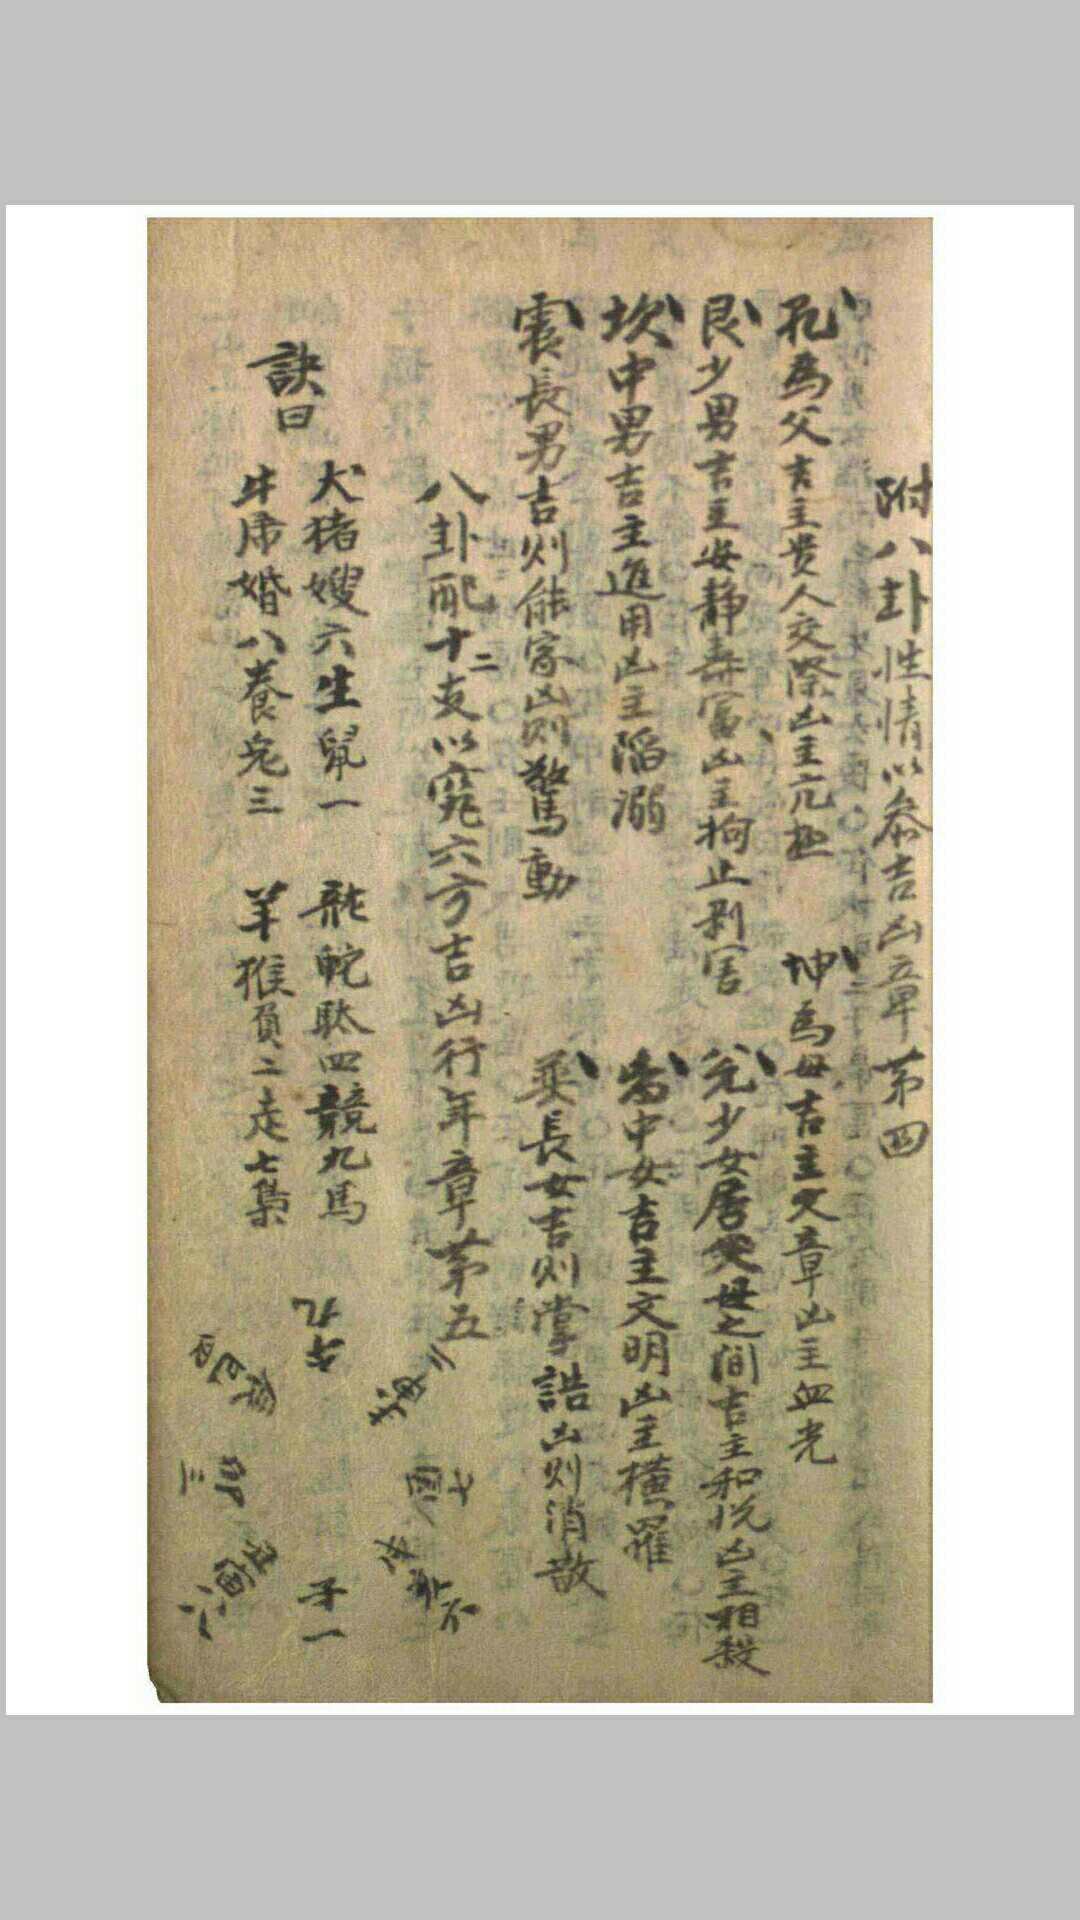 附八卦性情以叅吉凶章苐四
乹為父吉主贵人交際凶主亢極
坤為母吉主文章凶主血光
艮少男吉主安静寿富凶主拘止剥害
兊少女居父母之间吉主和悦凶主相殺
坎中男吉主進用凶主陷溺
离中女吉主文明凶主横罹
震長男吉则能家凶则驚動
巽長女吉则掌誥凶则消散
八卦配十二支以窮六方吉凶行年章苐五
訣曰
犬猪嫂六生鼠一
龍蛇馱四競九馬
牛虎婚八養兔三
羊猴負二走七集
坤二
七
乾六
子一
三
卯
八